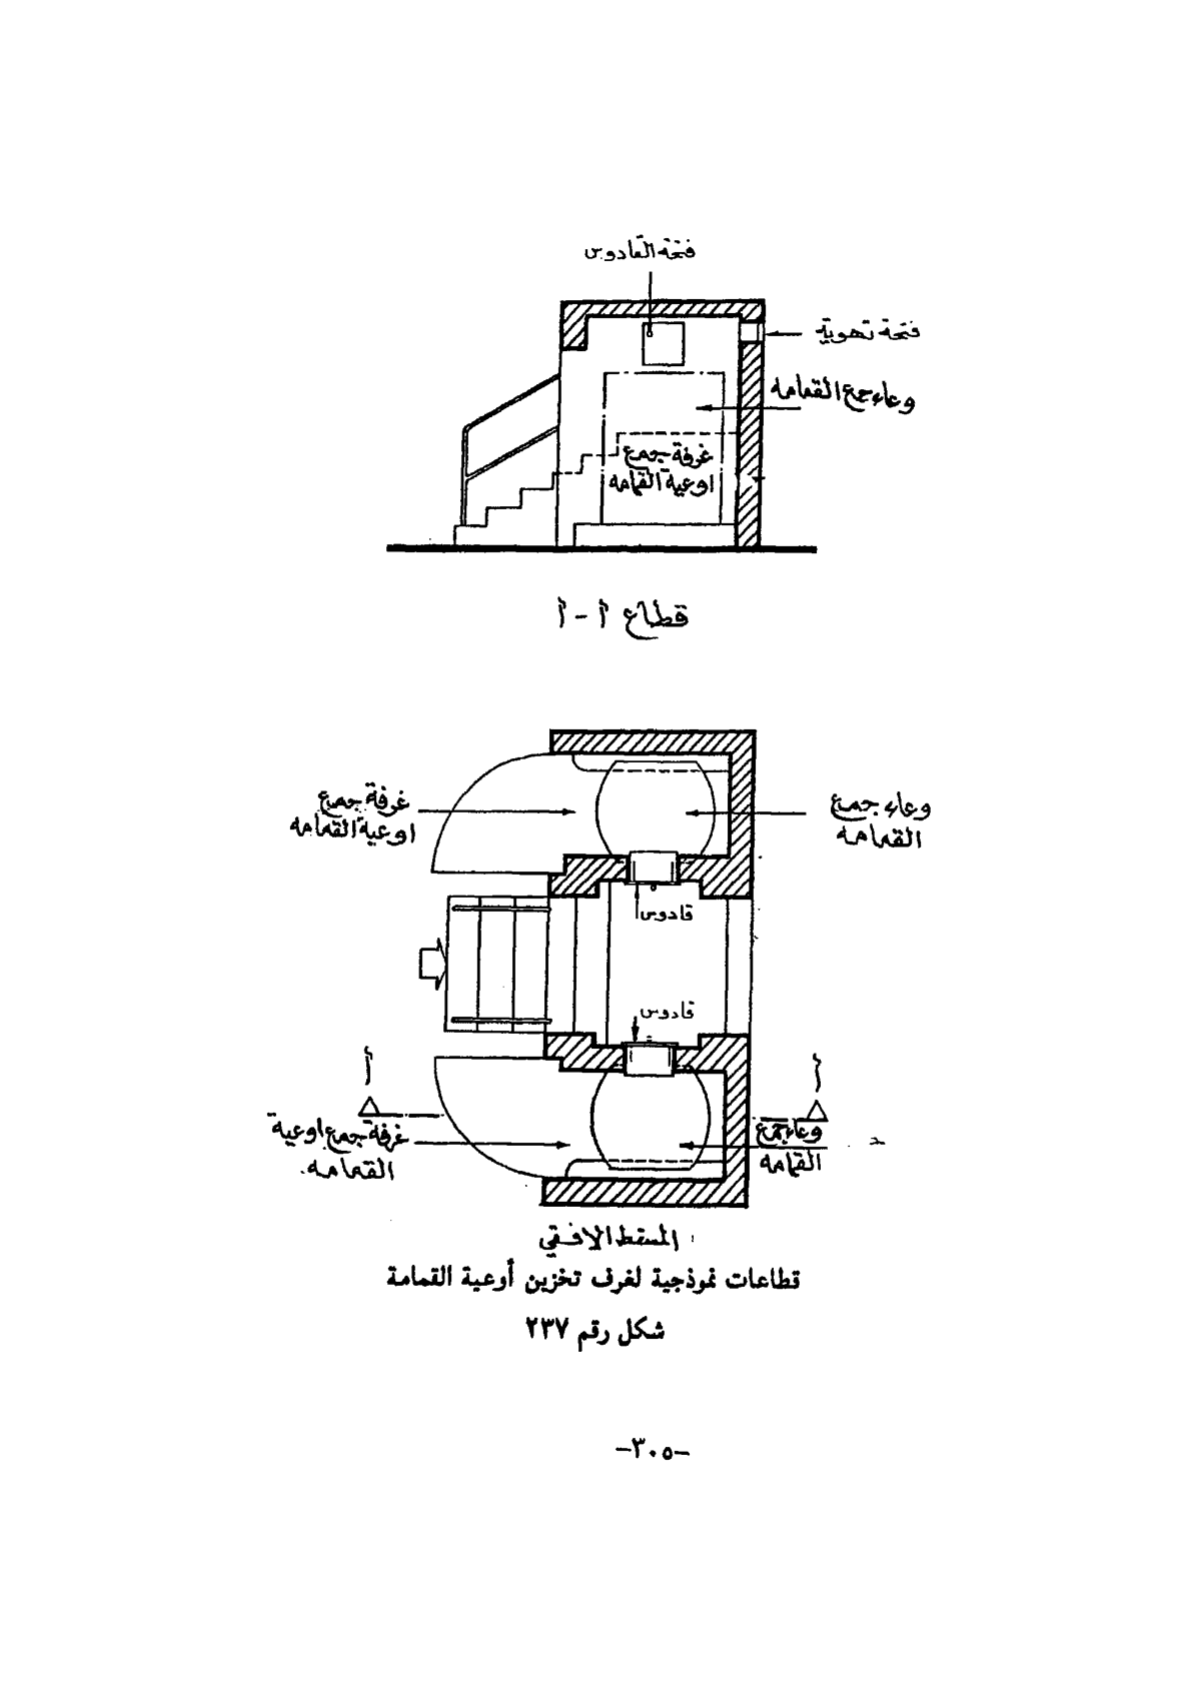 فتحة القادوس
فتحة تهوية
وعاء جمع القمامه
غرفة جمع
اوعية القمامه
قطاع أ - أ
غرفة جمع
اوعية القمامه
وعاء جمع
القمامه
قادوس
قادوس
أ
أ
غرفة جمع اوعية
القمامه
وعاء جمع
القمامه
المسقط الافقي
قطاعات نموذجية لغرف تخزين أوعية القمامة
شكل رقم ٢٣٧
-٣٠٥-